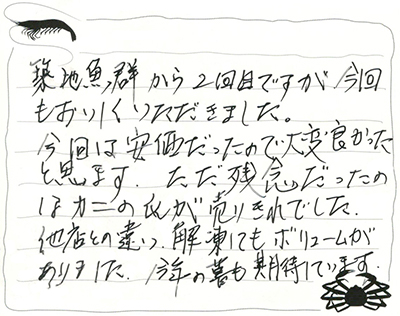 築地魚群から2回目ですが今回
もおいしくいただきました。
今回は安価だったので大変良かった
と思ます. ただ残念だったの
はカニの爪が売りきれでした.
他店との違い、解凍にてもボリュームが
ありました. 今年の暮も期待しています.